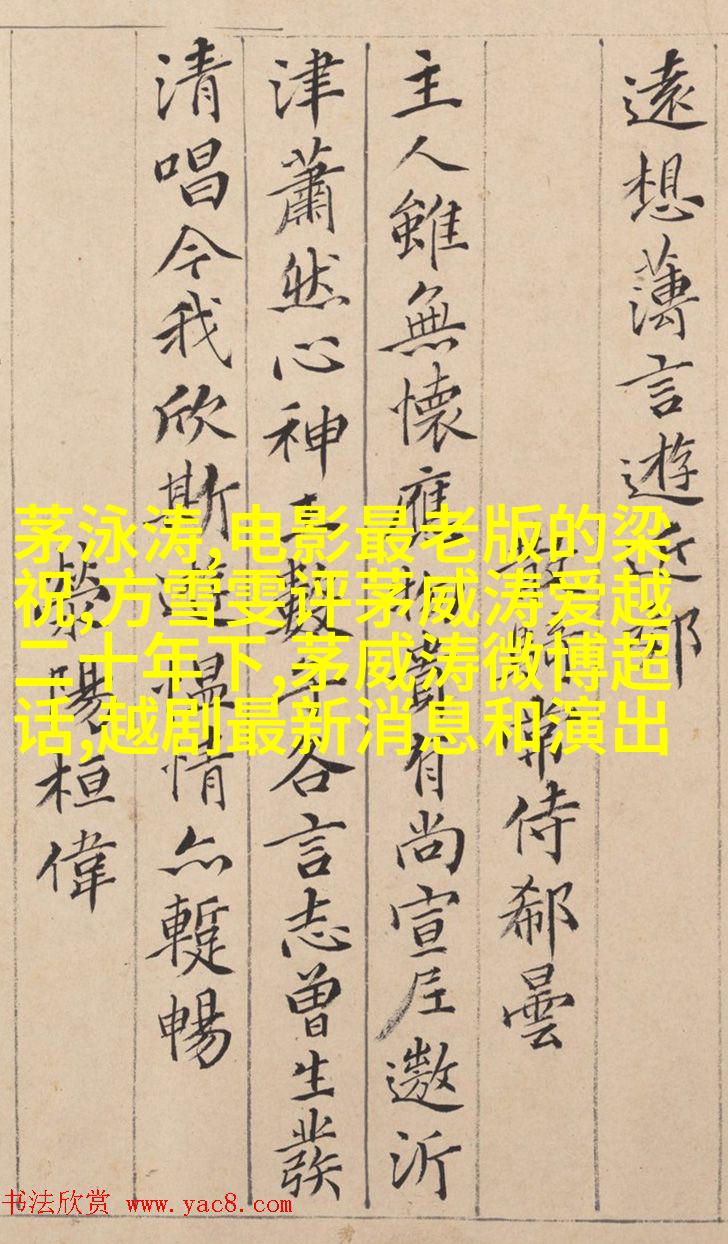 遠想薄言遊近郊
散騎常侍郗曇
主人雖無懷應物有尚宣尼遨沂
津蕭然心神王數子各言志曾生發
清唱今我欣斯遊慍情亦蹔暢
滎陽桓偉
茅泳涛,电影最老版的梁
祝,方雪雯评茅威涛爱越
二十年下,茅威涛微博超
话,越剧最新消息和演出
书法欣赏 www.yac8.com